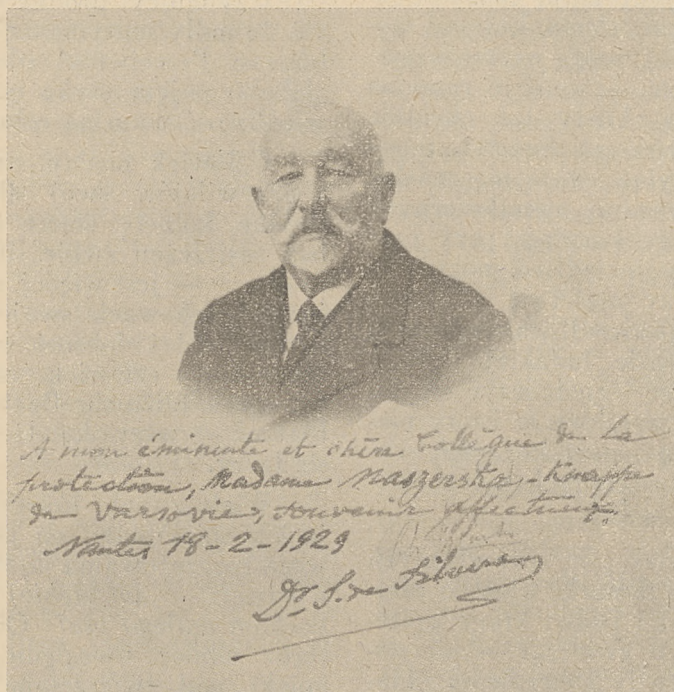 A mon éminente et chère Collègue de la
protection, Madame Maszerska-Knappe
de Varsovie, souvenir affectueux.
Nantes 18-2-1929
Dr. S. de